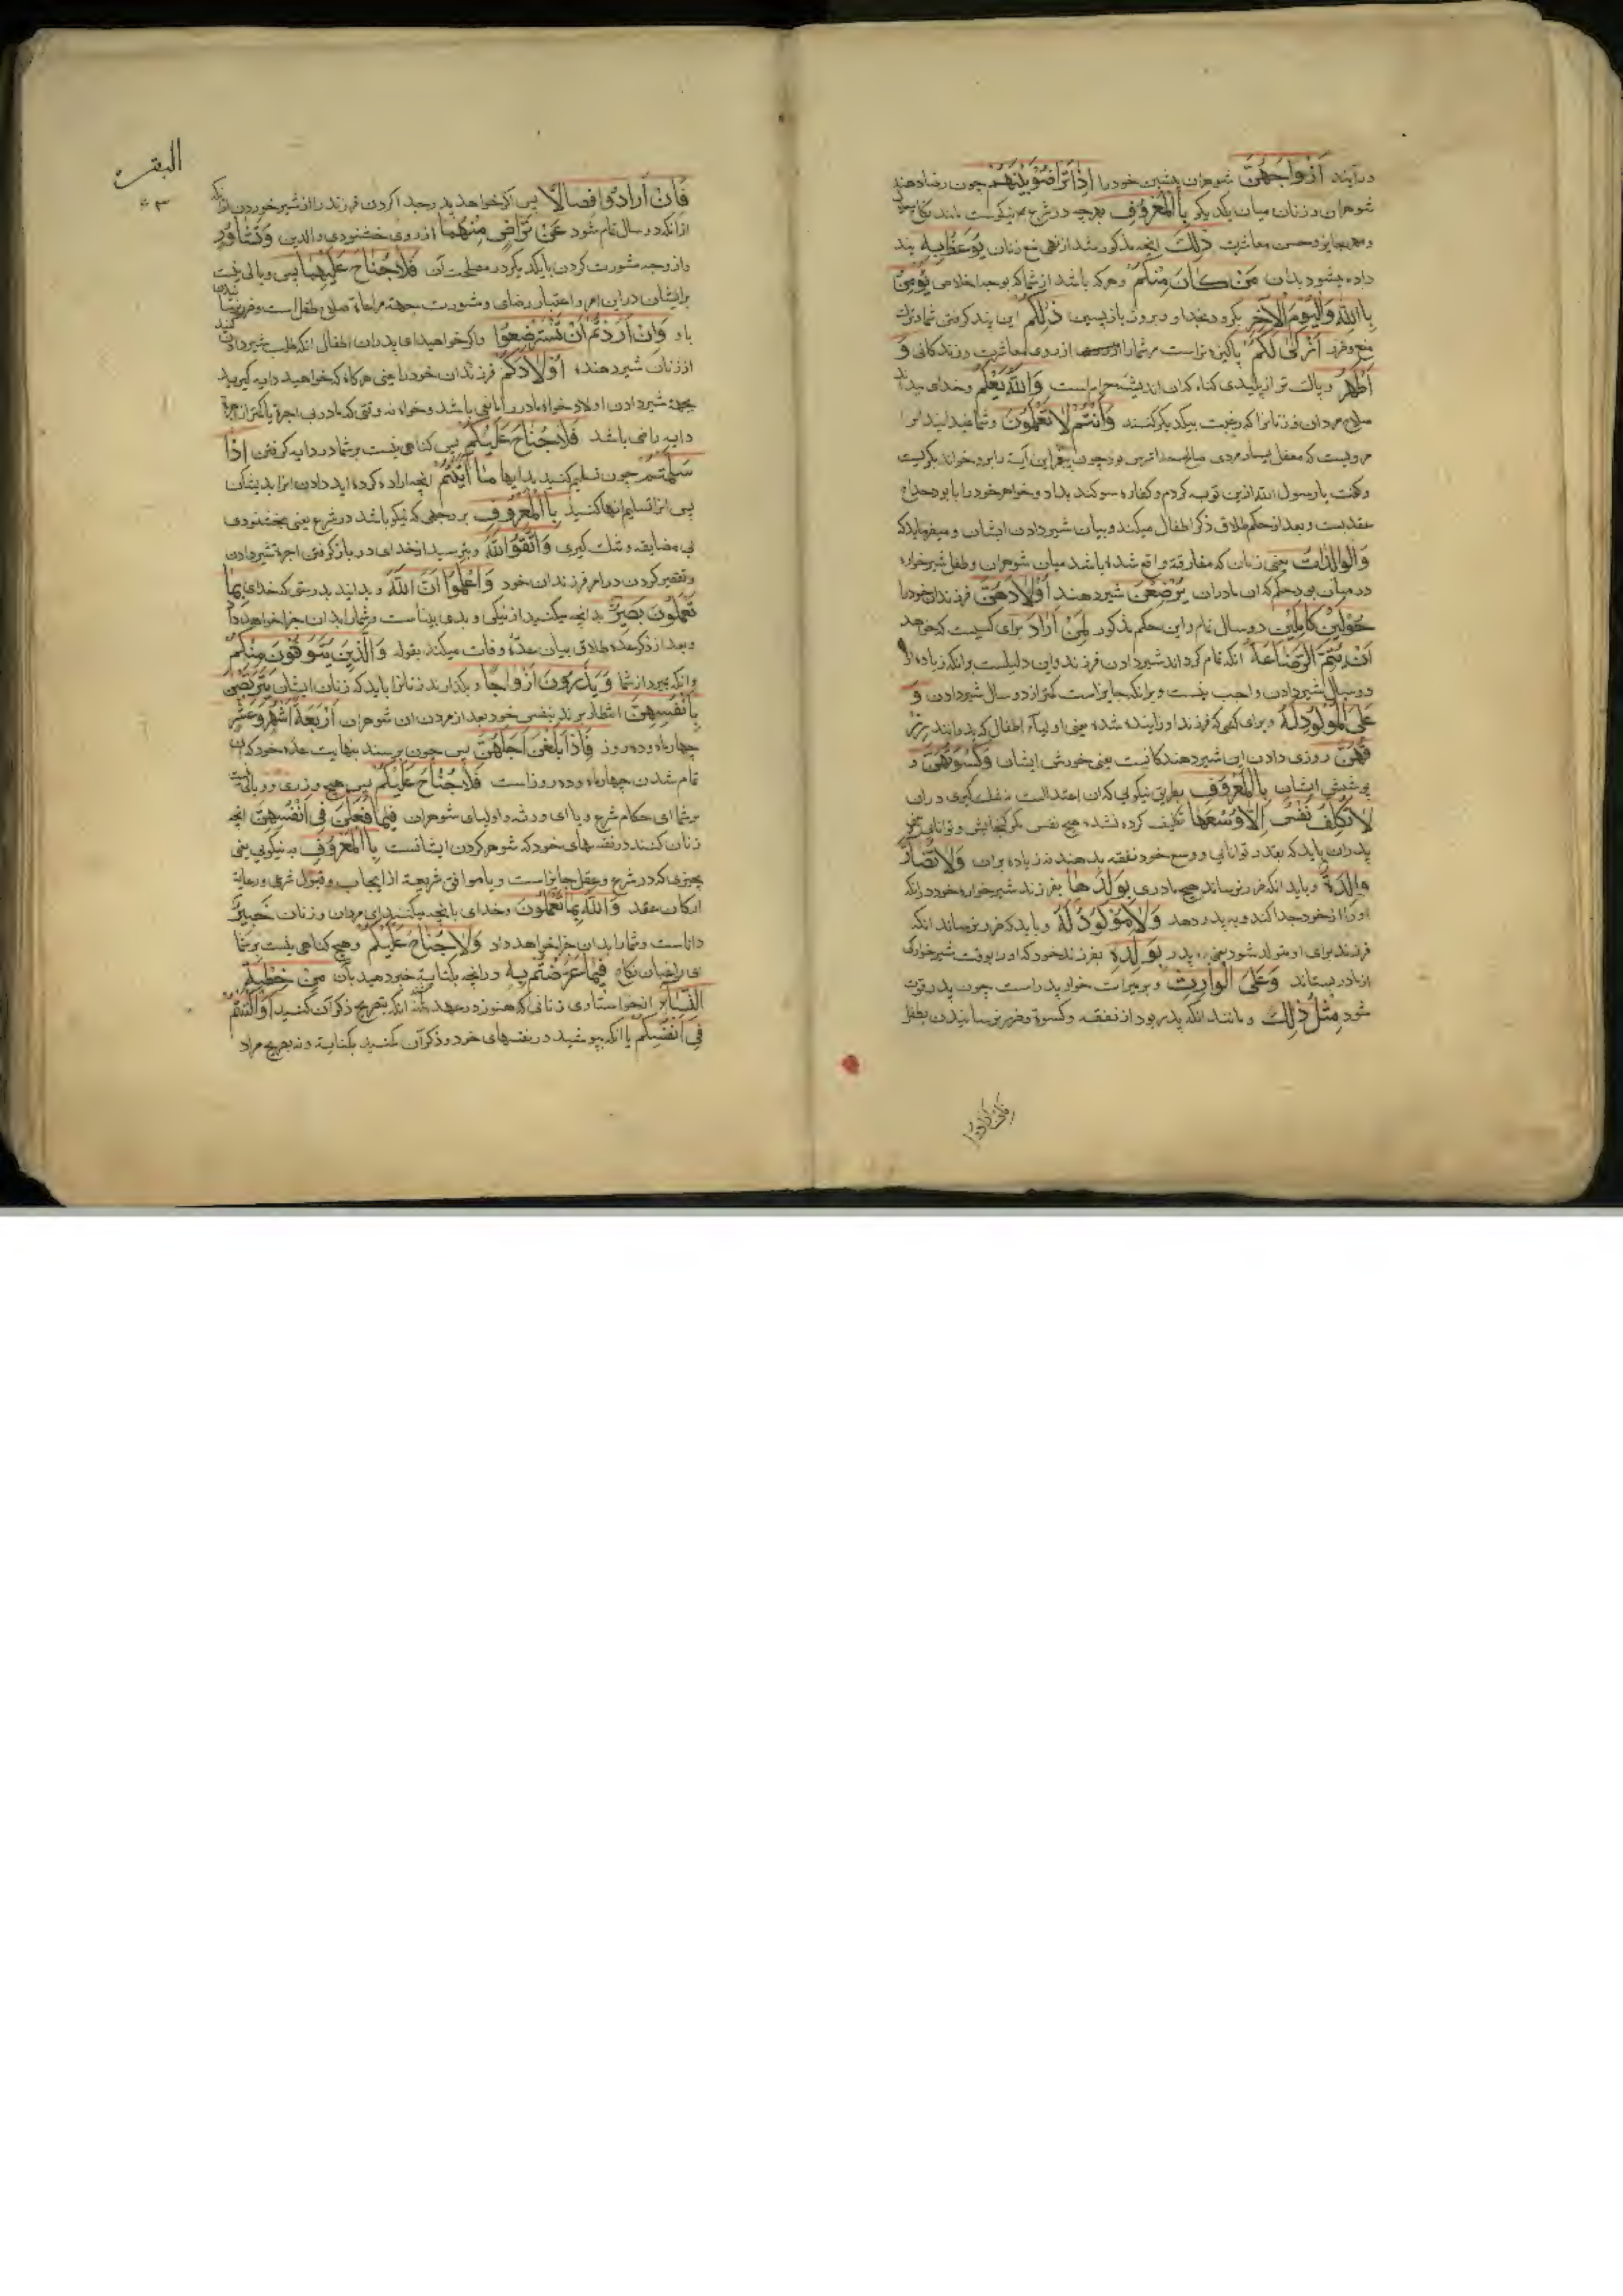 در آیند اَزْوَاجَهُنَّ شوهران پیشین خود را اِذَا تَرَاضَوْا بَيْنَهُمْ چون رضا دهند
شوهران و زنان میان یکدیگر بِالْمَعْرُوفِ بهرچه در شرع نیکوست مانند نکاح
و مهر جایز و حسن معاشرت ذٰلِكَ انچه مذکور شد از نهی منع زنان يُوعَظُ بِهِ پند
داده میشود بدان مَنْ كَانَ مِنْكُمْ هر که باشد از شما که بوجه اخلاص يُؤْمِنُ
بِاللّٰهِ وَالْيَوْمِ الْاٰخِرِ بگرود بخدا و بروز بازپسین ذٰلِكُمْ این پند گرفتن شما و ترک
منع و ضرر اَزْكٰى لَكُمْ پاکیزه تر است مر شما را از روی معاشرت و زندکانی وَ
اَطْهَرُ و پاک تر از پلیدی کناه که ان اندیشه حرام است وَاللّٰهُ يَعْلَمُ و خدای میداند
صلاح مردان و زنانرا که رغبت بیکدیگر کنند وَاَنْتُمْ لَا تَعْلَمُونَ و شما نمیدانید انرا
مرویست که معقل یسار مردی صالح خدا ترس بود چون پیغمبر این آیة را برو خواند بگریست
و گفت یا رسول الله ازین توبه کردم و کفاره سوکند بداد و خواهر خود را با بو دحداح
عقد بست و بعد از حکم طلاق ذکر اطفال میکند و بیان شیر دادن ایشان و میفرماید که
وَالْوَالِدَاتُ یعنی زنان که مفارقة واقع شده باشد میان شوهران و طفل شیرخواره
در میان بود حکم که ان مادران يُرْضِعْنَ شیر دهند اَوْلَادَهُنَّ فرزندان خود را
حَوْلَيْنِ كَامِلَيْنِ دو سال تمام و این حکم مذکور لِمَنْ اَرَادَ برای کسیست که خواهد
اَنْ يُتِمَّ الرَّضَاعَةَ انکه تمام کرداند شیر دادن فرزند و این دلیلست برانکه زیاده از
دو سال شیر دادن واجب نیست و برانکه جایز است کمتر از دو سال شیر دادن وَ
عَلَى الْمَوْلُودِ لَهُ و برای کسی که فرزند او زاییده شده یعنی اولیاء اطفال که پدرانند رِزْ
قُهُنَّ روزی دادن این شیر دهندکانست یعنی خورش ایشان وَكِسْوَتُهُنَّ و
پوشش ایشان بِالْمَعْرُوفِ بطریق نیکویی که ان اعتدالست نه تنک کیری در ان
لَا تُكَلَّفُ نَفْسٌ اِلَّا وُسْعَهَا تکلیف کرده نشده هیچ نفسی مکر کنجایش و توانایی
پدران باید که بقدر توانایی و وسع خود نفقه بدهند نه زیاده بران وَلَا تُضَارَّ
وَالِدَةٌ و باید انکه ضرر نرساند هیچ مادری بِوَلَدِهَا بفرزند شیرخواره خود در انکه
او را از خود جدا کند و به پدر دهد وَلَا مَوْلُودٌ لَهُ و باید که ضرر نرساند انکه
فرزند برای او متولد شود یعنی پدر بِوَلَدِهِ بفرزند خود که او را بوقت شیرخوارکی
از مادر بستاند وَعَلَى الْوَارِثِ و بر میراث خوار پدر است چون پدر فوت
شود مِثْلُ ذٰلِكَ و مانند انکه پدر بود از نفقه و کسوة و ضرر نرسانیدن بطفل
فان ارادوا
البقره
فَاِنْ اَرَادُوا فِصَالًا پس اکر خواهد پدر جدا کردن فرزند را از شیر خوردن
از انکه دو سال تمام شود عَنْ تَرَاضٍ مِنْهُمَا از روی خشنودی والدین وَتَشَاوُرٍ
و از وجه مشورت کردن با یکدیکر در مصلحت آن فَلَا جُنَاحَ عَلَيْهِمَا پس وبالی نیست
بر ایشان در این امر و اعتبار رضای و مشورت بجهة مراعاة صلاح طفل است و ضرر نرسانیدن
باو وَاِنْ اَرَدْتُمْ اَنْ تَسْتَرْضِعُوا و اکر خواهید ای پدران اطفال انکه طلب شیر دادن کنید
از زنان شیر دهنده اَوْلَادَكُمْ فرزندان خود را یعنی هرکاه که خواهید دایه کیرید
بجهة شیر دادن اولاد خواه مادر راضی باشد و خواه نه وقتی که مادر بی اجرة یا کمتر از اجرة
دایه راضی باشد فَلَا جُنَاحَ عَلَيْكُمْ پس کناهی نیست بر شما در دایه کرفتن اِذَا
سَلَّمْتُمْ چون تسلیم کنید بدایها مَا اٰتَيْتُمْ انچه اراده کرده اید دادن انرا بدیشان
پس انرا تسلیم انها کنید بِالْمَعْرُوفِ بر وجهی که نیکو باشد در شرع یعنی بخشنودی
بی مضایقه و تنک کیری وَاتَّقُوا اللّٰهَ و بترسید از خدای در باز کرفتن اجرة شیر دادن
و تقصیر کردن در امر فرزندان خود وَاعْلَمُوا اَنَّ اللّٰهَ و بدانید بدرستی که خدای بِمَا
تَعْمَلُونَ بَصِيرٌ بدانچه میکنید از نیکی و بدی بیناست و شما را بدان جزا خواهد داد
و بعد از ذکر عده طلاق بیان عدّهٔ وفات میکند بقوله وَالَّذِينَ يُتَوَفَّوْنَ مِنْكُمْ
و انکه بمیرد از شما وَيَذَرُونَ اَزْوَاجًا و بکذارند زنانرا باید که زنان ایشان يَتَرَبَّصْنَ
بِاَنْفُسِهِنَّ انتظار برند بنفس خود بعد از مردن ان شوهران اَرْبَعَةَ اَشْهُرٍ وَعَشْرًا
چهار ماه و ده روز فَاِذَا بَلَغْنَ اَجَلَهُنَّ پس چون برسند بنهایت عده خود که ان
تمام شدن چهار ماه و ده روز است فَلَا جُنَاحَ عَلَيْكُمْ پس هیچ وزری و وبالی نیست
بر شما ای حکام شرع و یا ای ورثه و اولیای شوهران فِيمَا فَعَلْنَ فِى اَنْفُسِهِنَّ انچه
زنان کنند در نفسهای خود که شوهر کردن ایشانست بِالْمَعْرُوفِ به نیکویی یعنی
بچیزی که در شرع و عقل جایز است و یا موافق شریعة از ایجاب و قبول شرعی و رعایة
ارکان عقد وَاللّٰهُ بِمَا تَعْمَلُونَ و خدای بانچه میکنید ای مردان و زنان خَبِيرٌ
داناست و شما را بدان جزا خواهد داد وَلَا جُنَاحَ عَلَيْكُمْ و هیچ کناهی نیست بر شما
ای راغبان نکاح فِيمَا عَرَّضْتُمْ بِهِ در انچه بکنایة خبر دهید بان مِنْ خِطْبَةِ
النِّسَاءِ از خواستاری زنانی که هنوز در عده اند نه انکه بتصریح ذکر آن کنید اَوْ اَكْنَنْتُمْ
فِى اَنْفُسِكُمْ یا انکه بپوشید در نفسهای خود و ذکر آن نکنید بکنایة و نه بصریح مراد